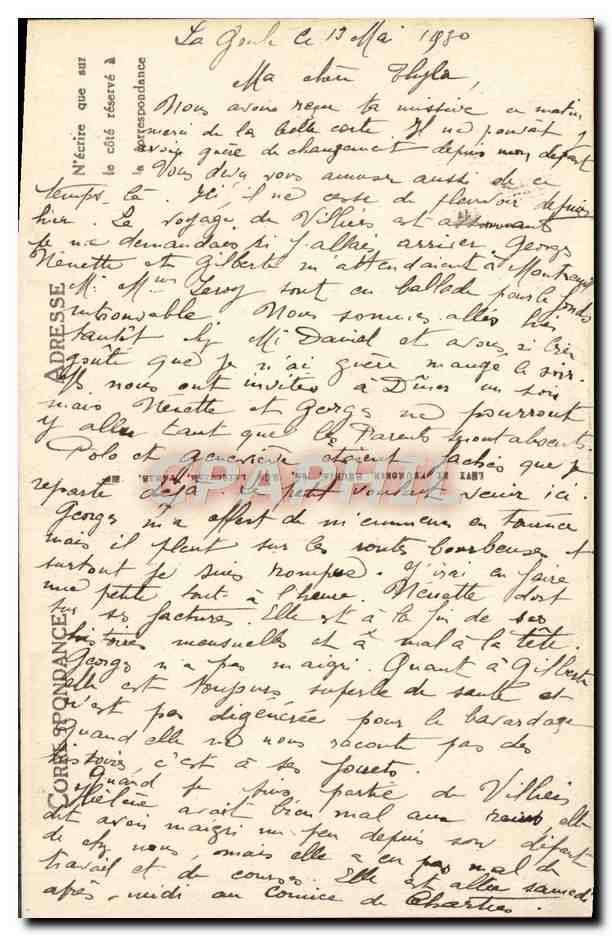 La Goule ce 13 Mai 1930
Ma chère Thylda,
Nous avons reçu ta missive ce matin
merci de la belle carte. Il ne pouvait y
avoir guère de changement depuis mon départ
Vous devez vous amuser aussi de ce
temps-là. Ici, il ne cesse de pleuvoir depuis
hier. Le voyage de Villiers est assommant
je me demandais si j'allais arriver. Georges
Nénette et Gilberte m'attendaient à Montreuil
Mr Mme Leroy sont en ballade pour le fonds
introuvable. Nous sommes allés hier
tantôt chez Mr David et avons si bien
goûté que je n'ai guère mangé le soir.
Ils nous ont invités à Dîner un soir
mais Nénette et Georges ne pourront
y aller tant que les Parents seront absents.
Polo et Geneviève étaient fachés que je
reparte déjà. Le petit voulait venir ici.
Georges m'a offert de m'emmener en tournée
mais il pleut sur les routes bourbeuses et
surtout je suis rompue. J'irai en faire
une petite tout à l'heure. Nénette dort
sur ses factures. Elle est à la fin de ses
histoires mensuelles et a mal à la tête.
Georges n'a pas maigri. Quant à Gilberte
elle est toujours superbe de santé et
n'est pas dégénérée pour le bavardage
Quand elle ne nous raconte pas des
histoires, c'est à ses jouets.
Quand je suis partie de Villiers
Hélène avait bien mal aux reins elle
doit avoir maigri un peu depuis son départ
de chez nous, mais elle a eu pas mal de
travail et de courses. Elle est allée samedi
après-midi au comice de Chartres.
N'écrire que sur
le côté réservé à
la correspondance
ADRESSE
CORRESPONDANCE
CPAPHIL